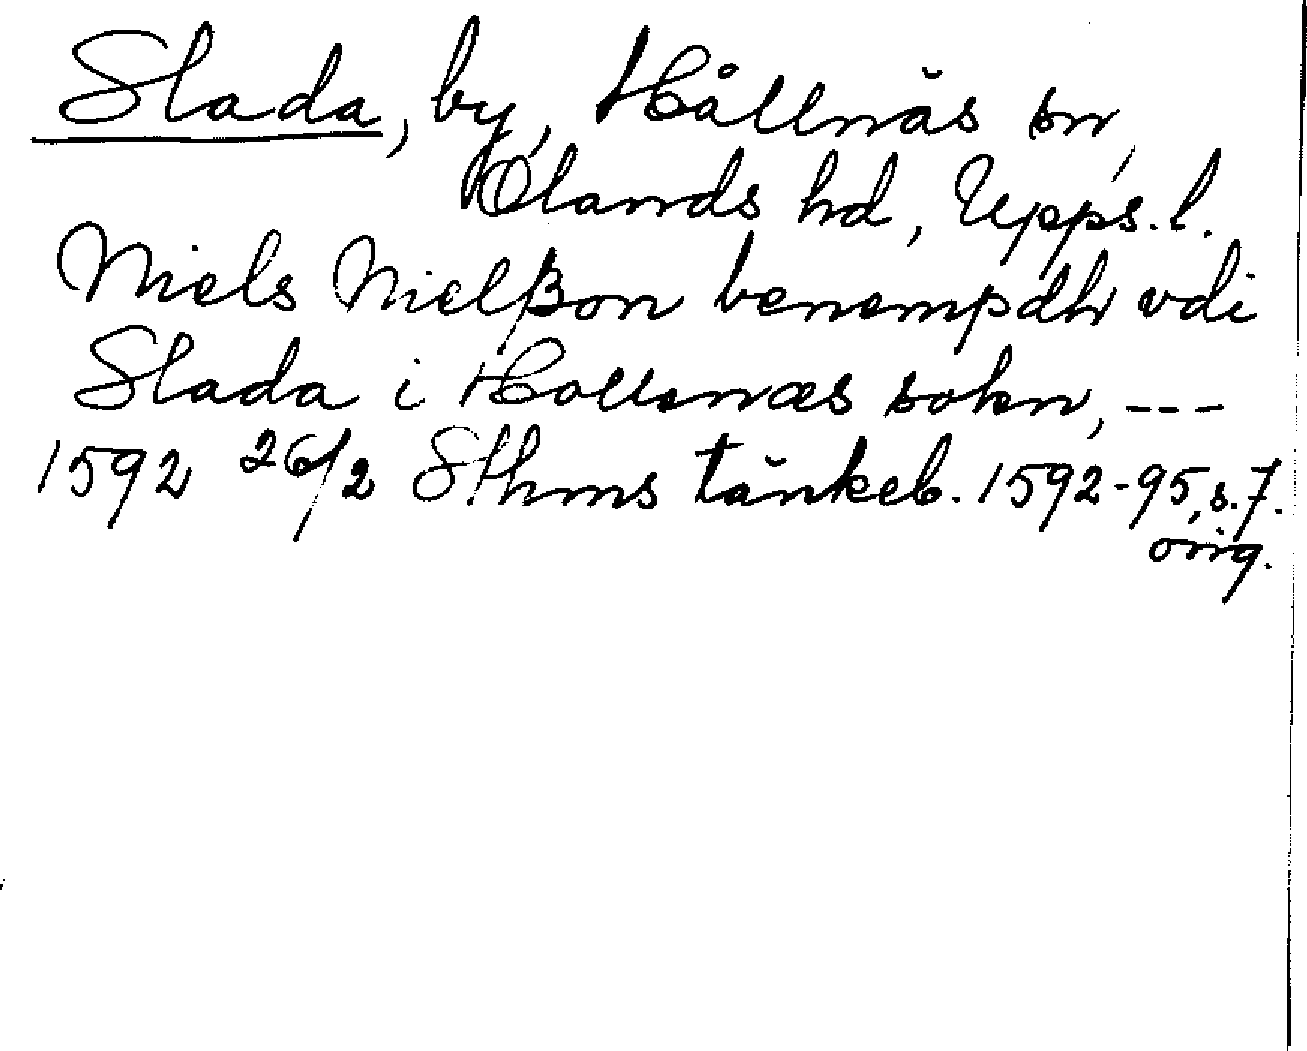 Slada, by, Hållnäs sn,
Olands hd, Upps. l.
Niels Nielßon benempdh vdi
Slada i Hollenæs sokn, ---
1592 26/2 Sthms tänkeb. 1592-95, s. 7.
orig.